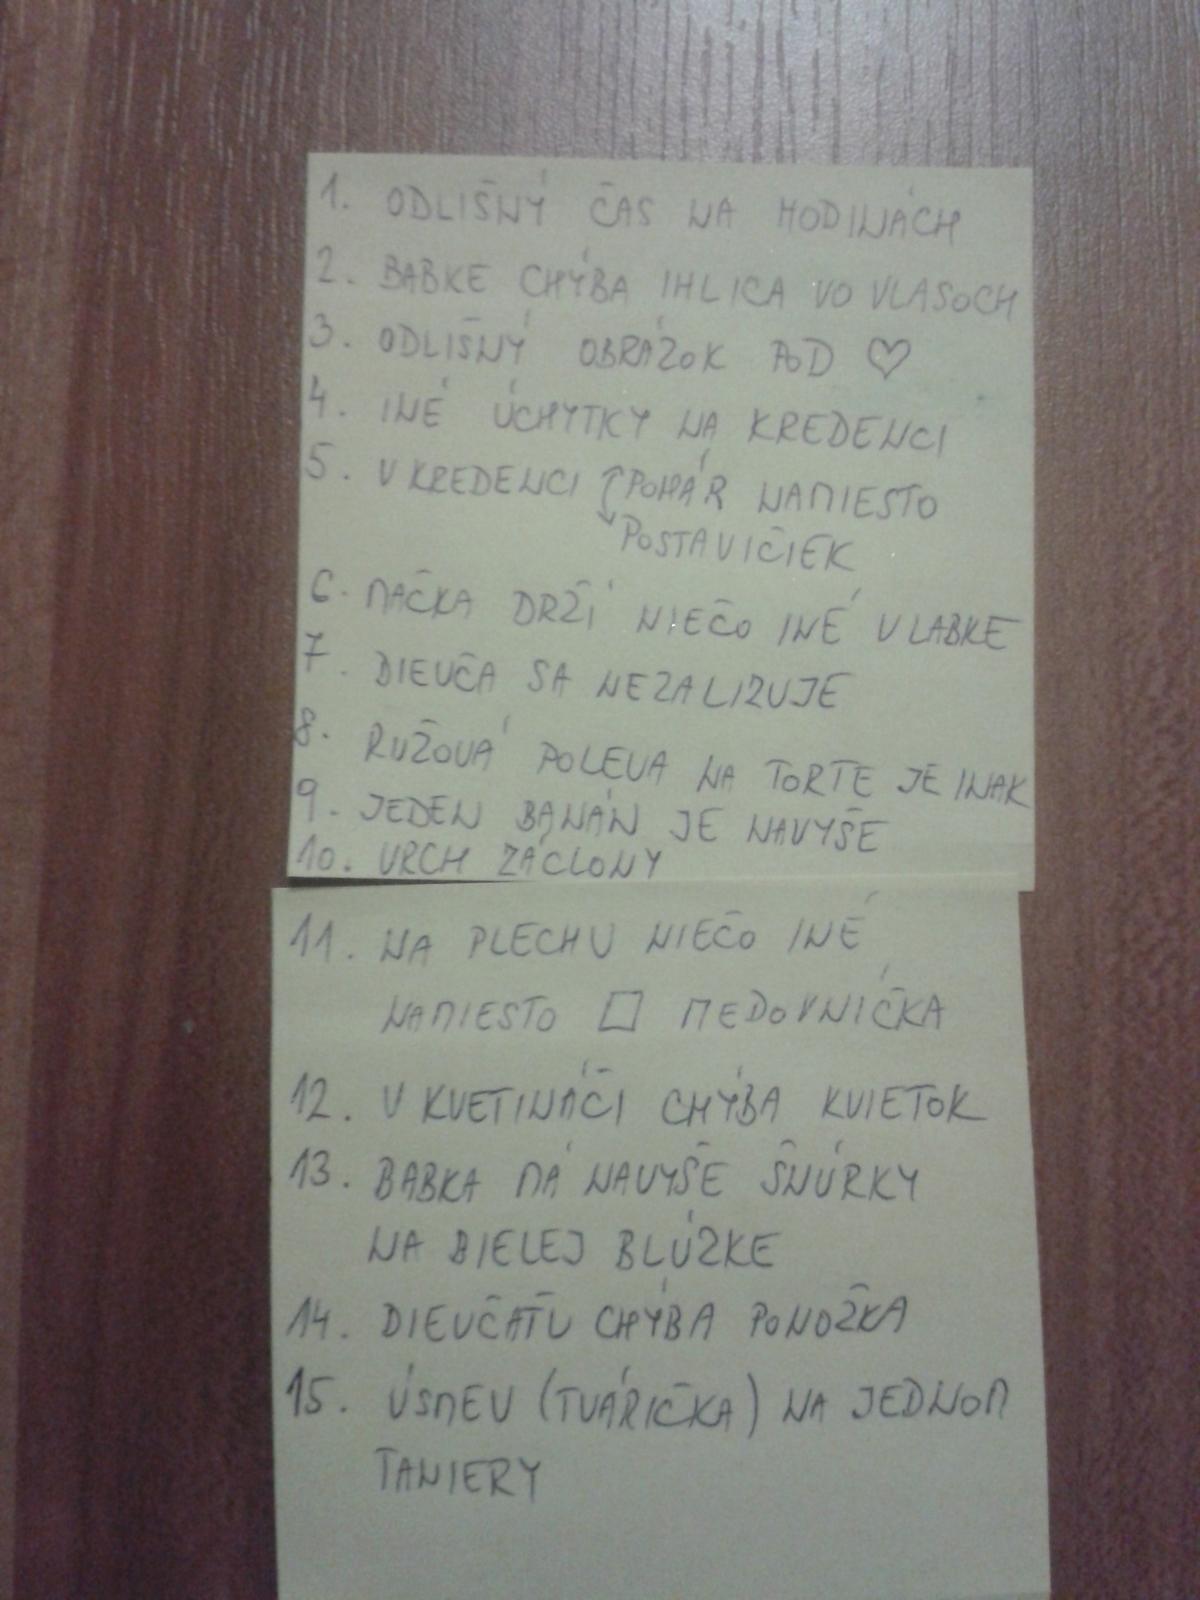 1. ODLIŠNÝ ČAS NA HODINÁCH
2. BABKE CHÝBA IHLICA VO VLASOCH
3. ODLIŠNÝ OBRÁZOK POD ♡
4. INÉ ÚCHYTKY NA KREDENCI
5. V KREDENCI POHÁR NAMIESTO
POSTAVIČIEK
6. MAČKA DRŽÍ NIEČO INÉ V LABKE
7. DIEVČA SA NEZALIZUJE
8. RUŽOVÁ POLEVA NA TORTE JE INAK
9. JEDEN BANÁN JE NAVYŠE
10. VRCH ZÁCLONY
11. NA PLECHU NIEČO INÉ
NAMIESTO □ MEDOVNÍČKA
12. V KVETINÁČI CHÝBA KVIETOK
13. BABKA MÁ NAVYŠE ŠNÚRKY
NA BIELEJ BLÚZKE
14. DIEVČAŤU CHÝBA PONOŽKA
15. ÚSMEV (TVÁRIČKA) NA JEDNOM
TANIERY